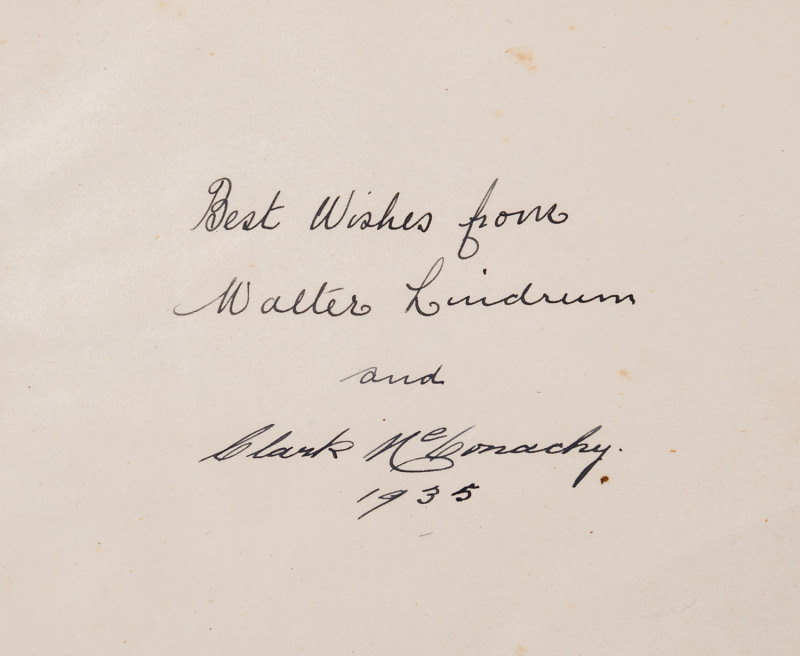 Best Wishes from
Walter Lindrum
and
Clark McConachy.
1935